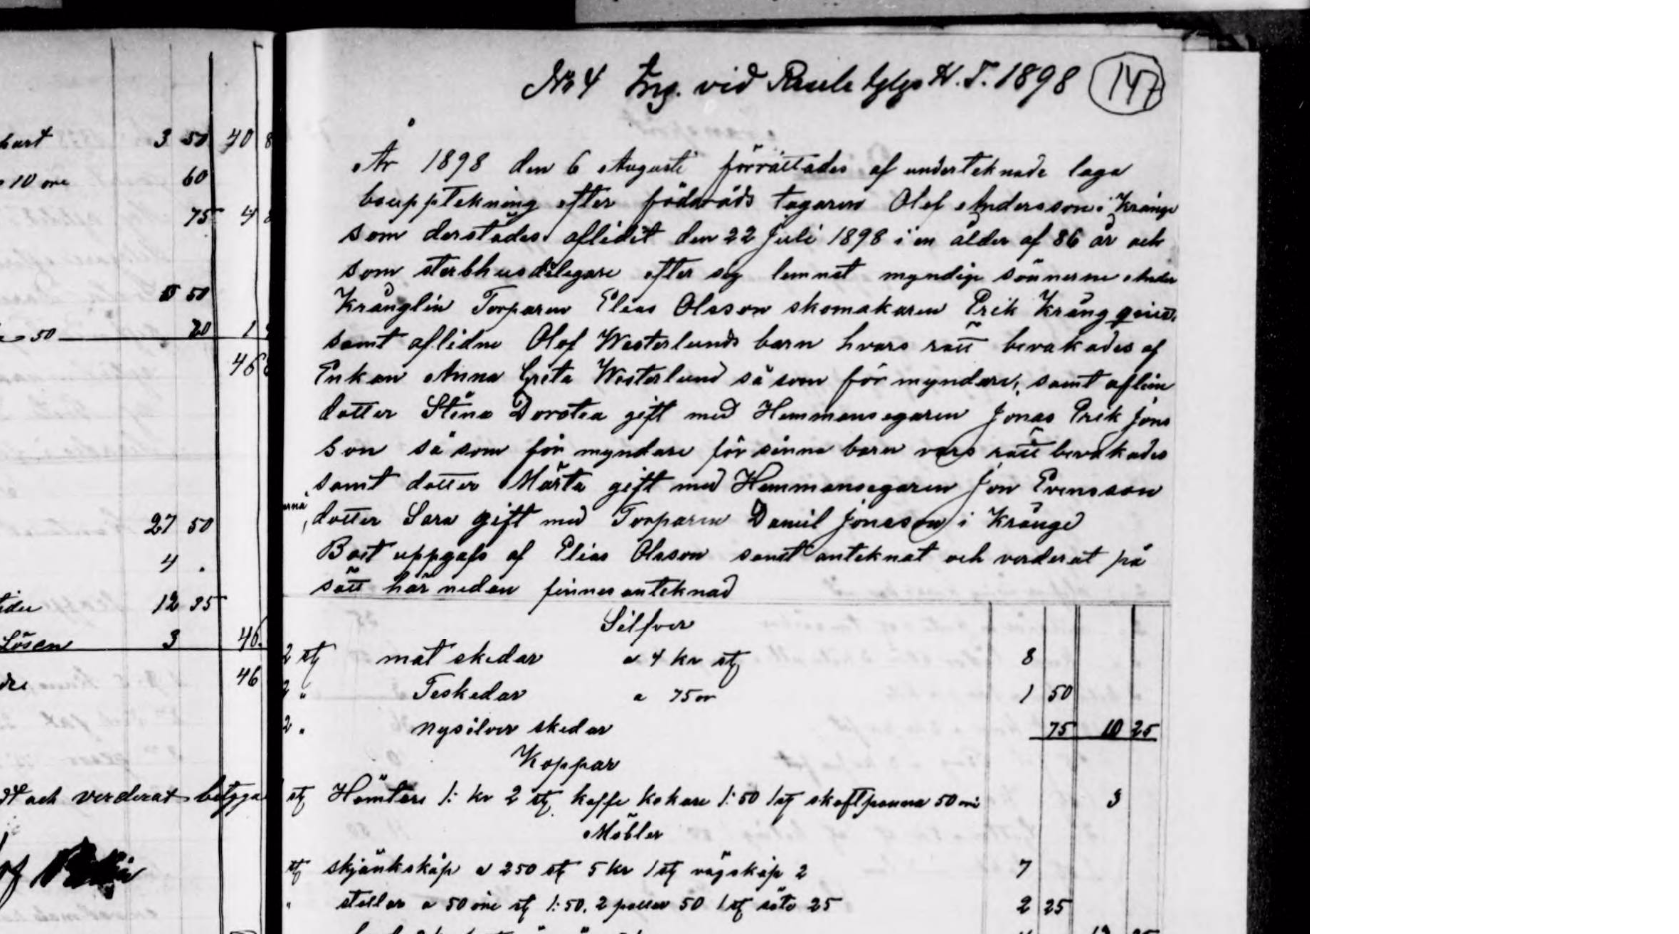 No 4 Ing. vid H. T. 1898 147
År 1898 den 6 Augusti förrättades af underteknade laga
boupptekning efter föderåds tagaren Olof Andersson i Krånge
som derstädes aflidit den 22 Juli 1898 i en ålder af 86 år och
som sterbhusdelegare efter sig lemnat myndige sönnerne
Krånglin Torparen Elias Olsson skomakaren Erik
samt aflidne Olof Westerlunds barn hvars rätt bevakades af
Enkan Anna Greta Westerlund så som för myndare, samt aflidn
dotter Stina Dorotea gift med Hemmansegaren Jonas Erik Jons
son så som för myndare för sinna barn vars rätt bevakades
samt dotter Märta gift med Hemmansegaren Jon Evensson
dotter Sara gift med Torparen Daniel Jonsson i Krånge
Boet uppgafs af Elias Olsson samt anteknat och verderat på
sätt här nedan finnes anteknad
Silfver
2 st mat skedar a 4 kr st 8
2 " Teskedar a 75 ör 1 50
2 " nysilver skedar 75 10 25
Koppar
st 1: kr 2 st kaffe kokare 1:50 1 st skaftpanna 50 öre 3
Möbler
st skjänkskåp a 250 st 5 kr 1 st vägskåp 2 7
" stollar a 50 öre st 1:50. 2 50 1 st 25 2 25
3 50 40 8
a 10 öre 60
75 4 8
5 50
a - 50 20 1
46 6
27 50
4 .
12 35
Lösen 3 46
46
och verderat betyga